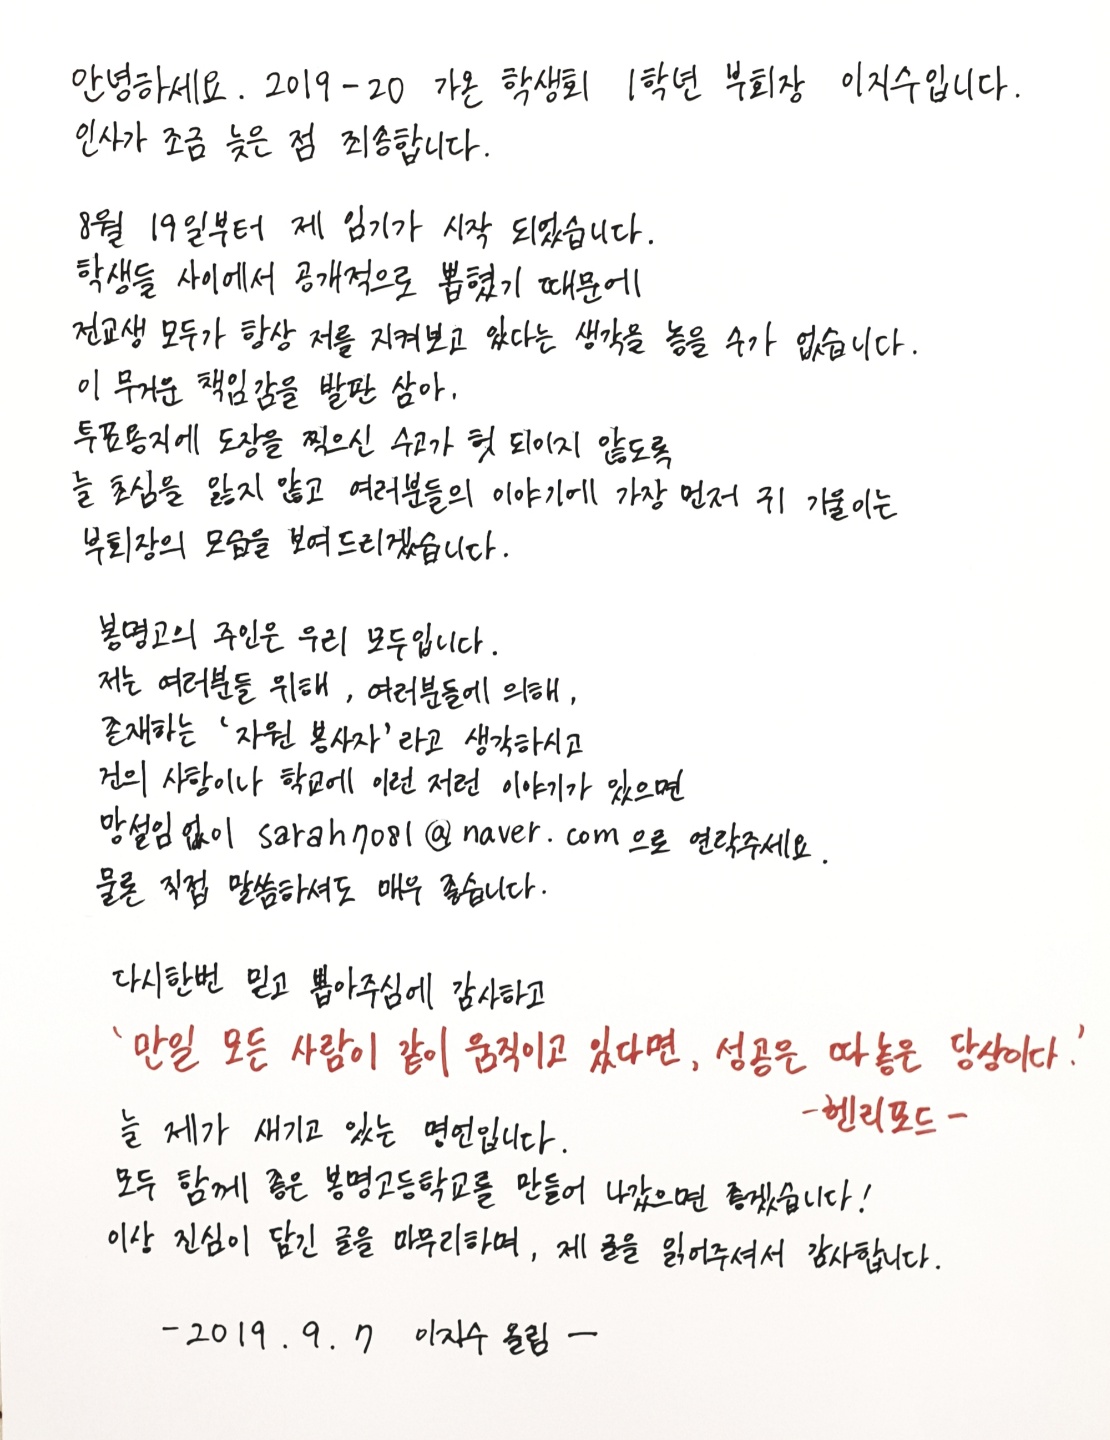 안녕하세요. 2019-20 가온 학생회 1학년 부회장 이지수입니다.
인사가 조금 늦은 점 죄송합니다.
8월 19일부터 제 임기가 시작 되었습니다.
학생들 사이에서 공개적으로 뽑혔기 때문에
전교생 모두가 항상 저를 지켜보고 있다는 생각을 놓을 수가 없습니다.
이 무거운 책임감을 발판 삼아.
투표용지에 도장을 찍으신 수고가 헛 되이지 않도록
늘 초심을 잃지 않고 여러분들의 이야기에 가장 먼저 귀 기울이는
부회장의 모습을 보여드리겠습니다.
봉명고의 주인은 우리 모두입니다.
저는 여러분들 위해, 여러분들에 의해,
존재하는 '자원 봉사자'라고 생각하시고
건의 사항이나 학교에 이런 저런 이야기가 있으면
망설임 없이 sarah7081@naver.com으로 연락주세요.
물론 직접 말씀하셔도 매우 좋습니다.
다시한번 믿고 뽑아주심에 감사하고
'만일 모든 사람이 같이 움직이고 있다면, 성공은 따 놓은 당상이다.'
-헨리포드-
늘 제가 새기고 있는 명언입니다.
모두 함께 좋은 봉명고등학교를 만들어 나갔으면 좋겠습니다!
이상 진심이 담긴 글을 마무리하며, 제 글을 읽어주셔서 감사합니다.
-2019.9.7 이지수 올림-